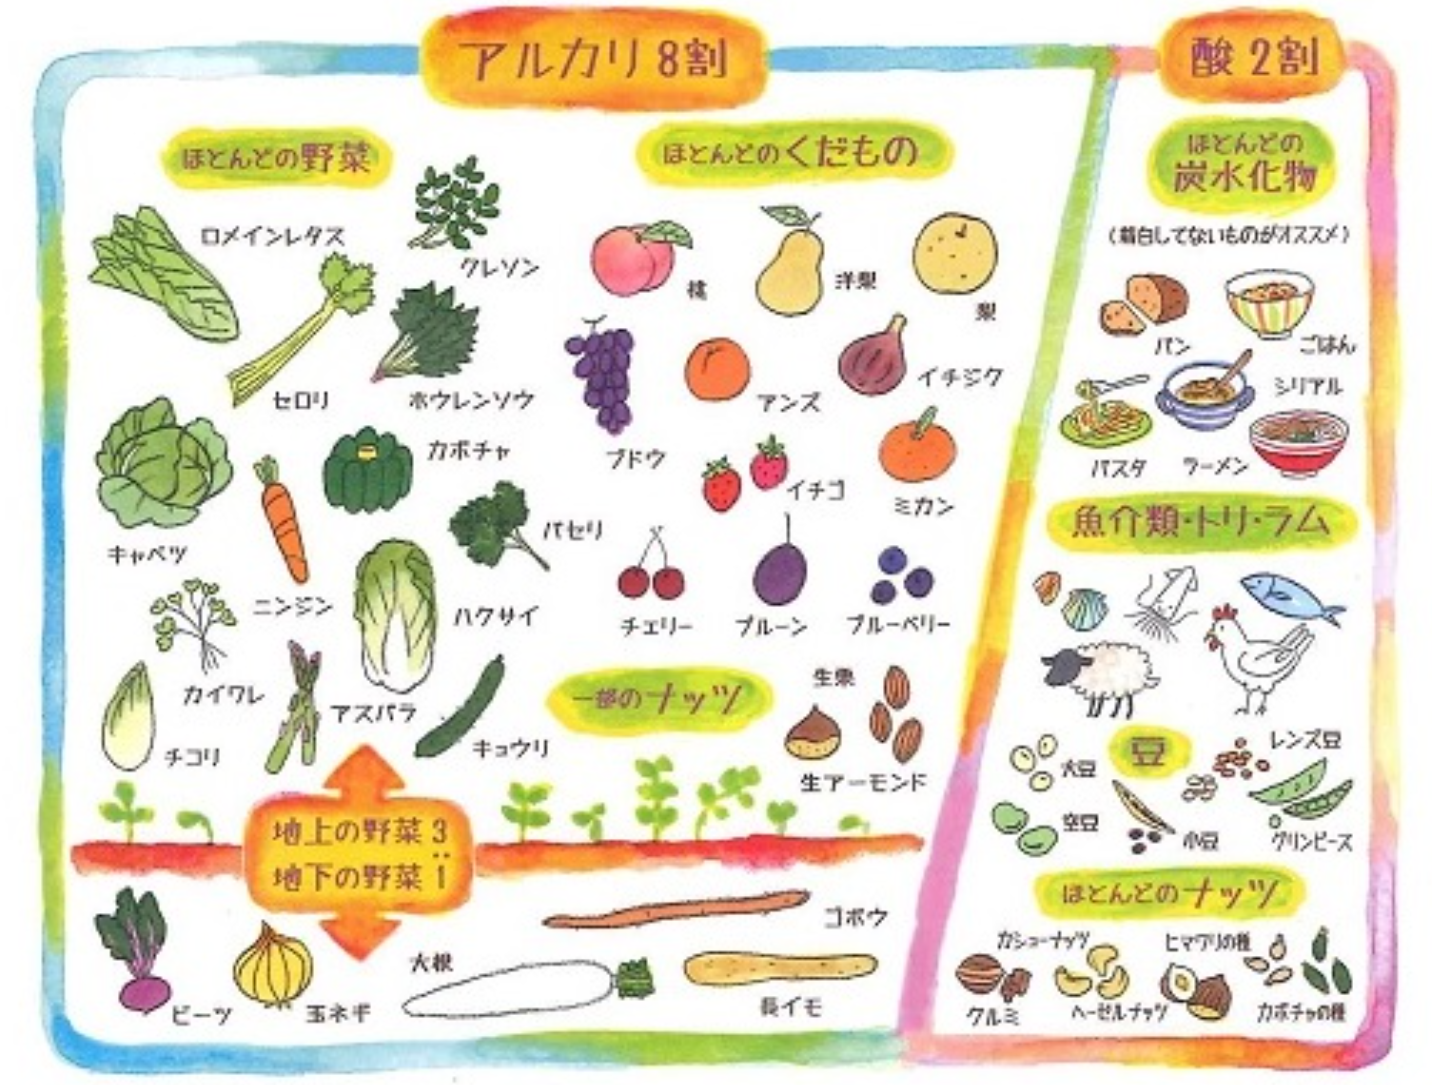 アルカリ8割
酸2割
ほとんどの野菜
ロメインレタス
クレソン
セロリ
ホウレンソウ
カボチャ
キャベツ
ニンジン
パセリ
ハクサイ
カイワレ
アスパラ
チコリ
キュウリ
ほとんどのくだもの
桃
洋梨
梨
ブドウ
アンズ
イチジク
イチゴ
ミカン
チェリー
プルーン
ブルーベリー
一部のナッツ
生栗
生アーモンド
地上の野菜3
:
地下の野菜1
ビーツ
玉ネギ
大根
ゴボウ
長イモ
ほとんどの
炭水化物
(精白してないものがオススメ)
パン
ごはん
シリアル
パスタ
ラーメン
魚介類・トリ・ラム
豆
大豆
レンズ豆
空豆
小豆
グリンピース
ほとんどのナッツ
カシューナッツ
ヒマワリの種
クルミ
ヘーゼルナッツ
カボチャの種